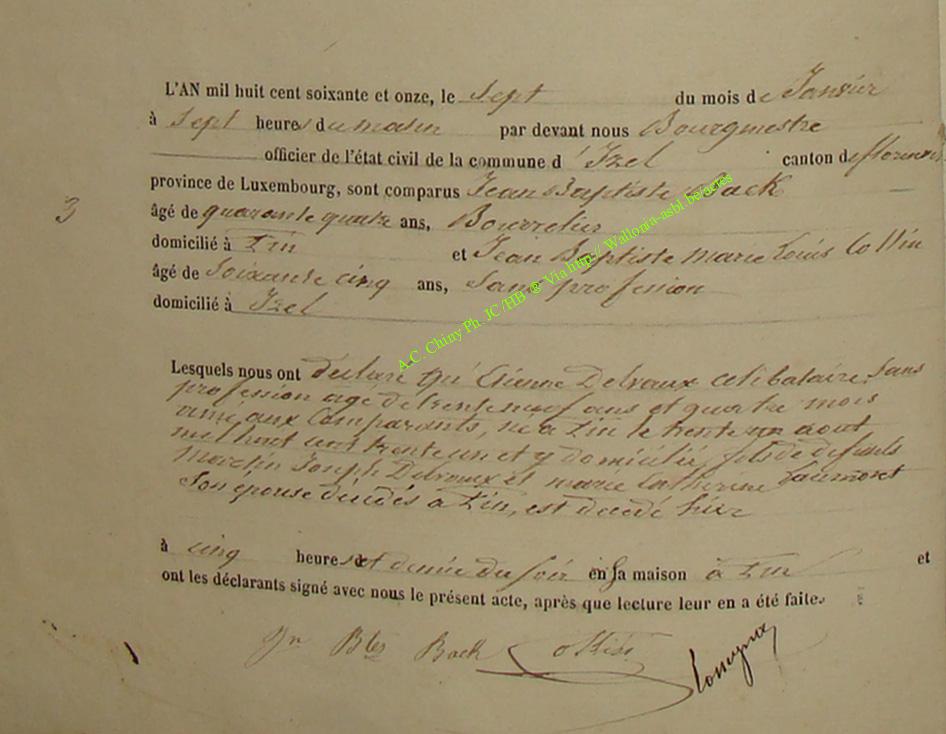 L'AN mil huit cent soixante et onze, le sept du mois de Janvier
à sept heures du matin par devant nous Bourgmestre
officier de l'état civil de la commune d'Izel canton de florenville
province de Luxembourg, sont comparus Jean Baptiste Back
3
âgé de quarante quatre ans, Bourrelier
domicilié à Pin et Jean Baptiste marie Louis Collin
âgé de Soixante cinq ans, Sans profession
domicilié à Izel
Lesquels nous ont déclaré qu'Etienne Delvaux celibataire, sans
profession agé de trente neuf ans et quatre mois
ami aux Comparants, né a Pin le trente un aout
mil huit cent trente un et y domicilié, fils de defunts
Martin Joseph Delvaux et marie Catherine
Son epouse décédés a Pin, est decedé hier
à cinq heures et demie du soir en sa maison à Pin et
ont les déclarants signé avec nous le présent acte, après que lecture leur en a été faite.
Jn Btes Back
A-C. Chiny Ph. JC /HB @ Via http:// Wallonia-asbl.be/actes